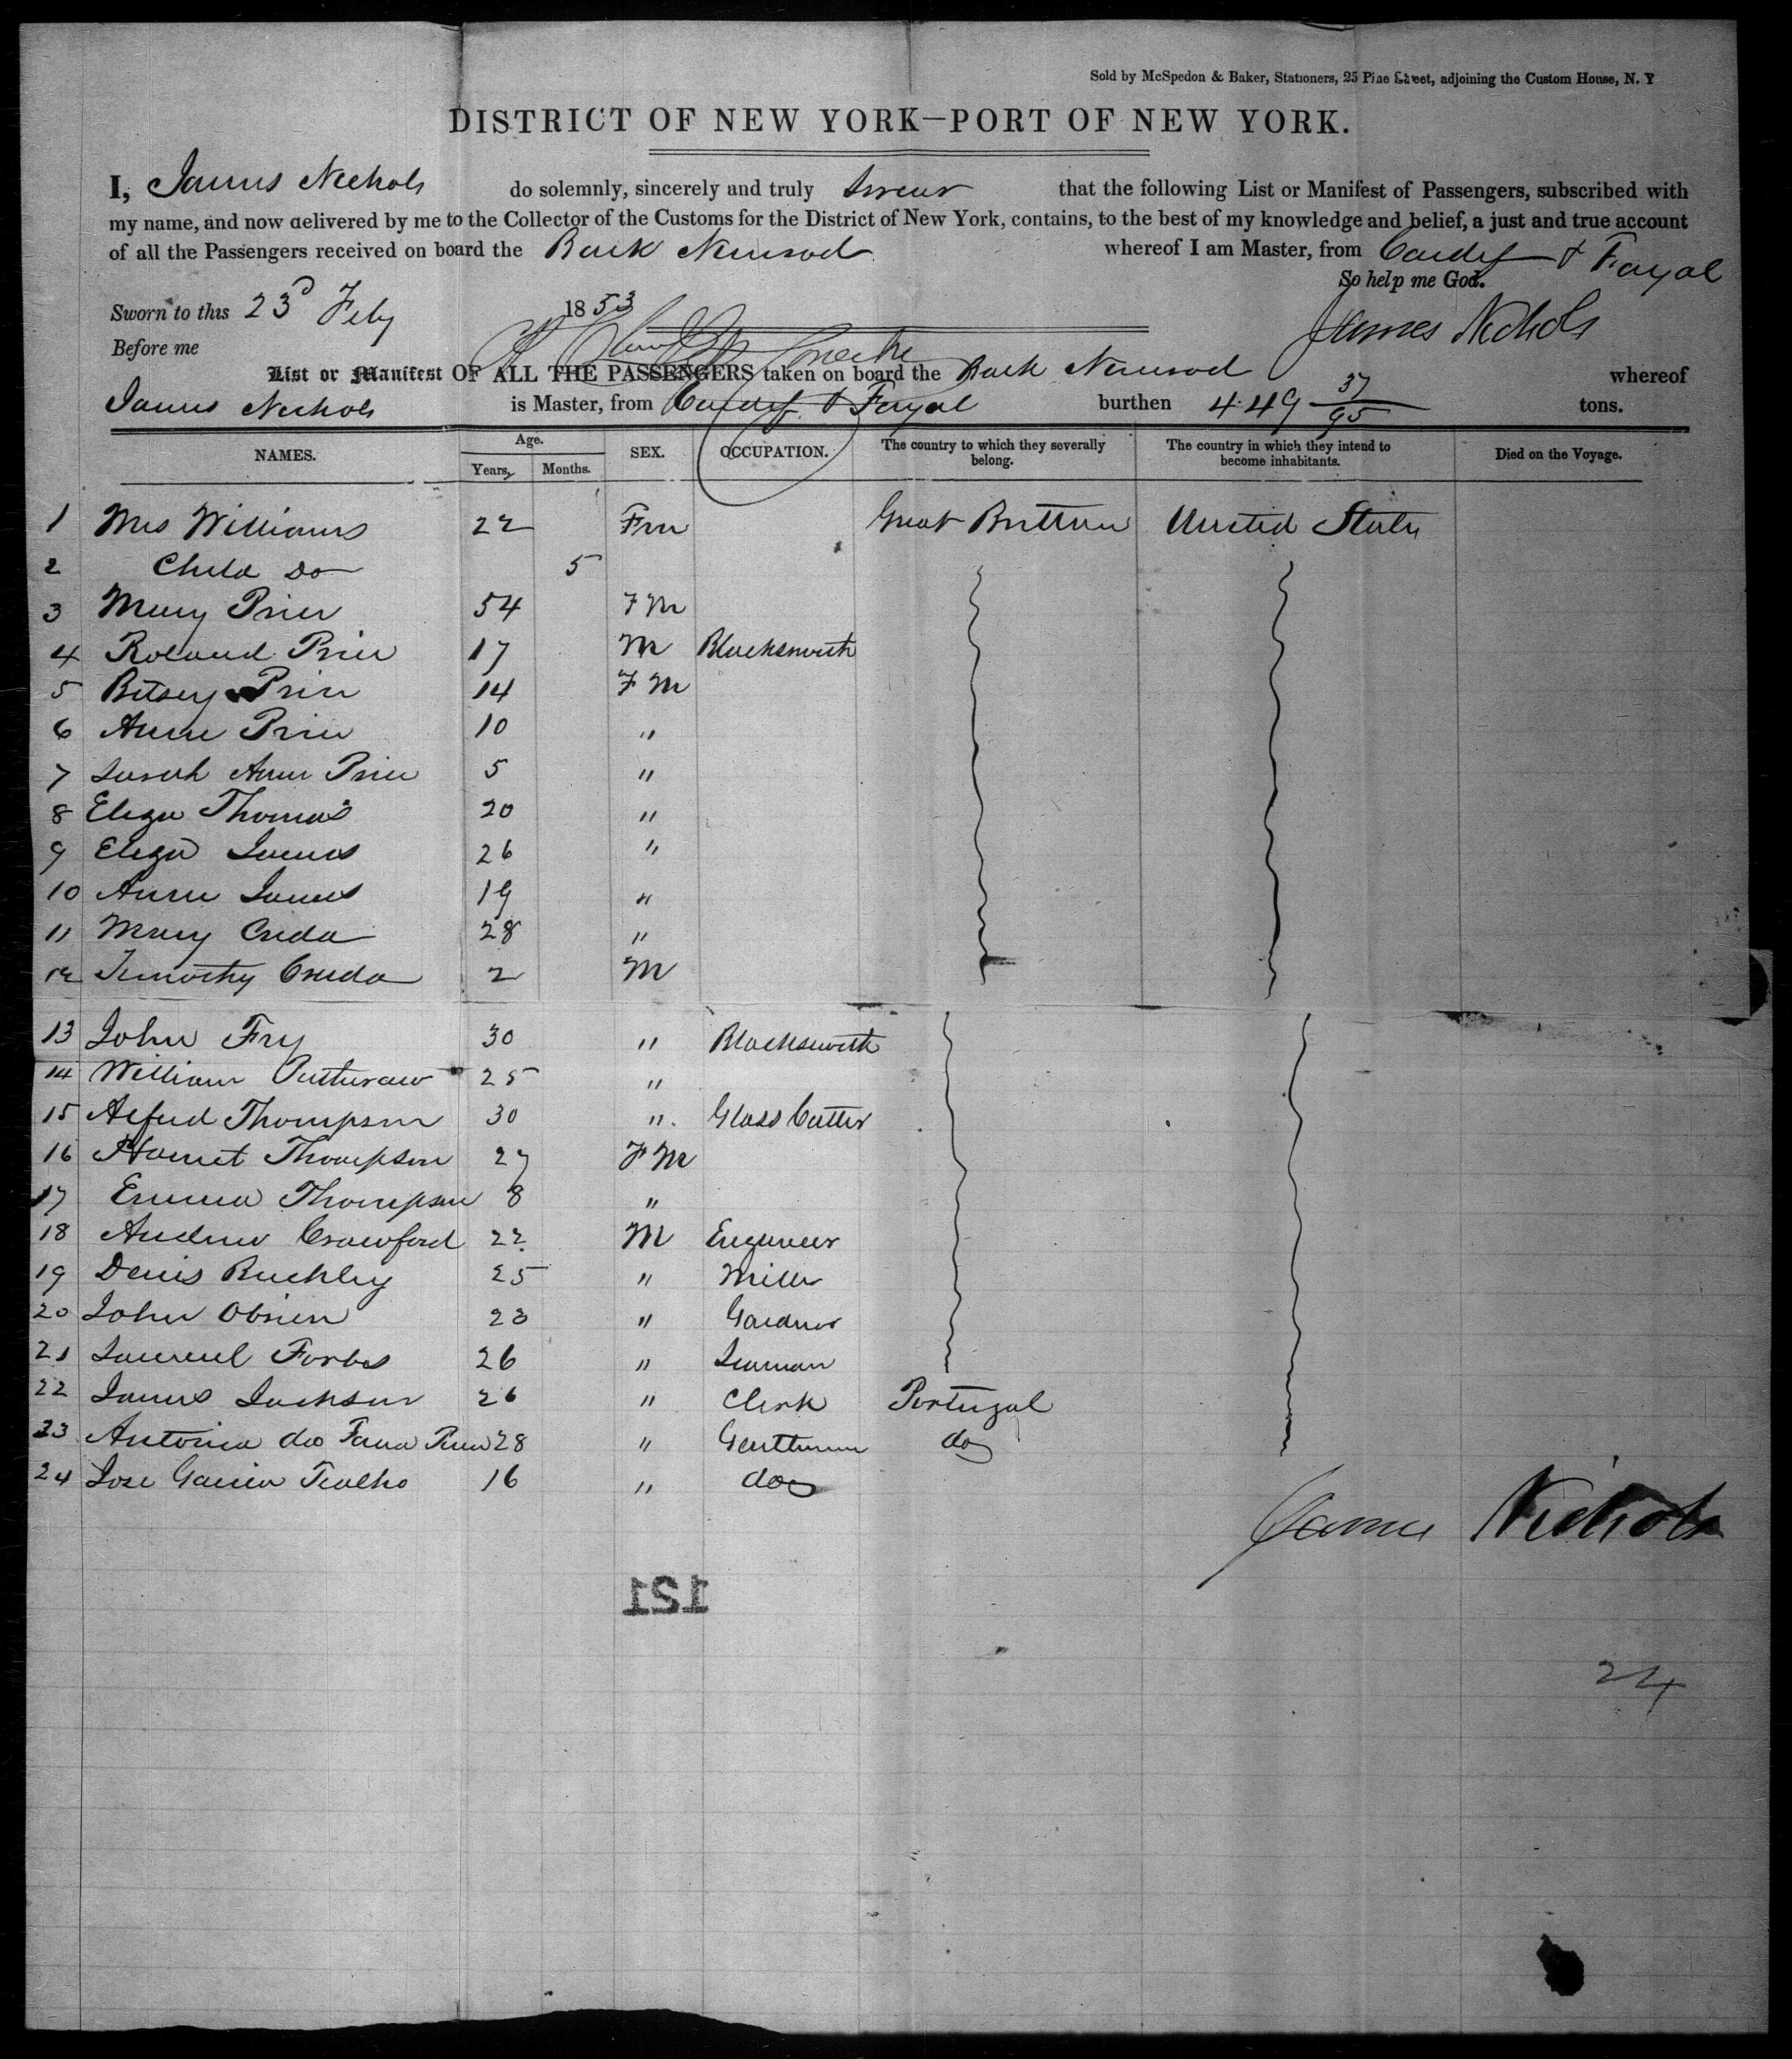 Sold by McSpedon & Baker, Stationers, 25 Pine Street, adjoining the Custom House, N. Y
DISTRICT OF NEW YORK—PORT OF NEW YORK.
I, James Nichols do solemnly, sincerely and truly swear that the following List or Manifest of Passengers, subscribed with
my name, and now delivered by me to the Collector of the Customs for the District of New York, contains, to the best of my knowledge and belief, a just and true account
of all the Passengers received on board the Bark Nimrod whereof I am Master, from Cardiff & Fayal
So help me God.
Sworn to this 23d Feby 1853
James Nichols
Before me
List or Manifest OF ALL THE PASSENGERS taken on board the Bark Nimrod whereof
James Nichols is Master, from Cardiff & Fayal burthen 449 37/95 tons.
NAMES. Age. Years, Months. SEX. OCCUPATION. The country to which they severally belong. The country in which they intend to become inhabitants. Died on the Voyage.
1 Mrs Williams 22 Fm Great Brittain United States
2 Child Do 5
3 Mary Price 54 F M
4 Roland Price 17 M Blacksmith
5 Betsey Price 14 F M
6 Anne Price 10 "
7 Sarah Ann Price 5 "
8 Eliza Thomas 20 "
9 Eliza James 26 "
10 Anne James 19 "
11 Mary Creda 28 "
12 Timothy Creda 2 M
13 John Fry 30 " Blacksmith
14 William 25 "
15 Alfred Thompson 30 " Glass Cutter
16 Harriet Thompson 27 F M
17 Emma Thompson 8 "
18 Andrew Crawford 22 M Engineer
19 Denis Buckley 25 " Miller
20 John Obrien 23 " Gardner
21 Samuel Forbes 26 " Seaman
22 James Jackson 26 " Clerk Portugal
23 Antonio do 28 " Gentleman do
24 Jose Garcia 16 " do
James Nichols
121
24